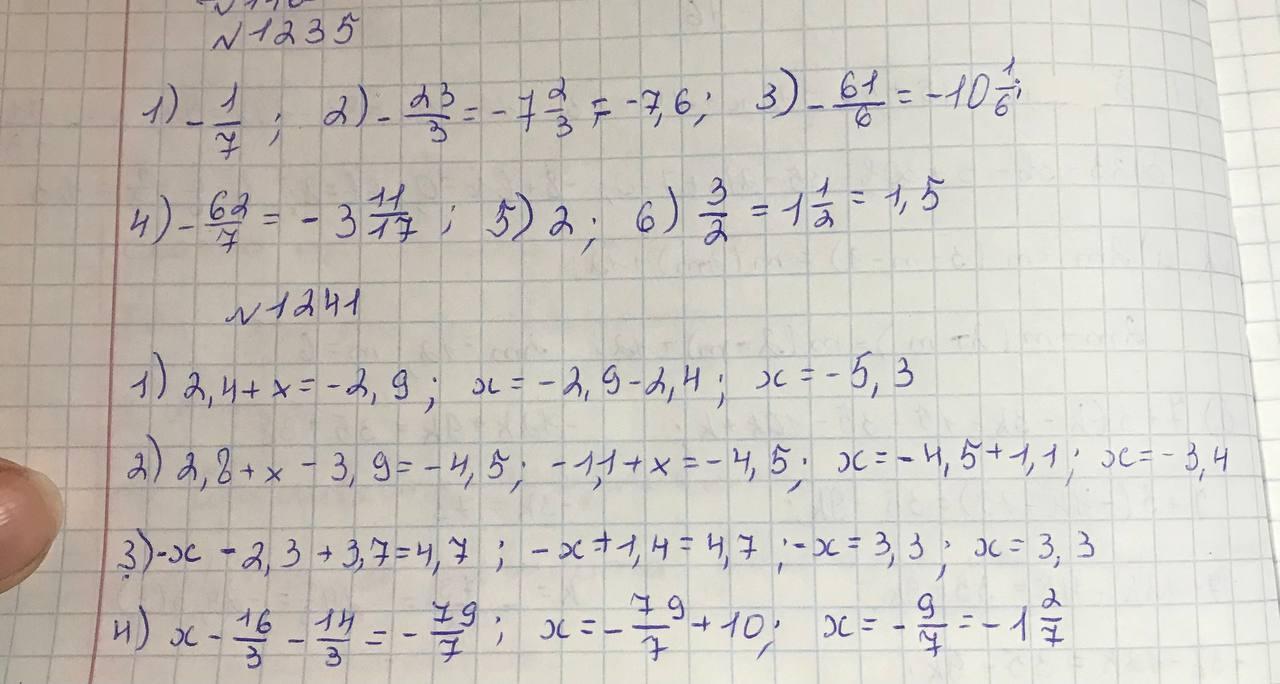 №1235
1) -1/7 ; 2) -23/3 = -7 2/3 = -7,6; 3) -61/6 = -10 1/6;
4) -62/7 = -3 11/17 ; 5) 2; 6) 3/2 = 1 1/2 = 1,5
№1241
1) 2,4+x=-2,9; x=-2,9-2,4; x=-5,3
2) 2,8+x-3,9=-4,5; -1,1+x=-4,5; x=-4,5+1,1; x=-3,4
3) -x-2,3+3,7=4,7; -x+1,4=4,7; -x=3,3; x=3,3
4) x-16/3-14/3=-79/7; x=-79/7+10; x=-9/7=-1 2/7